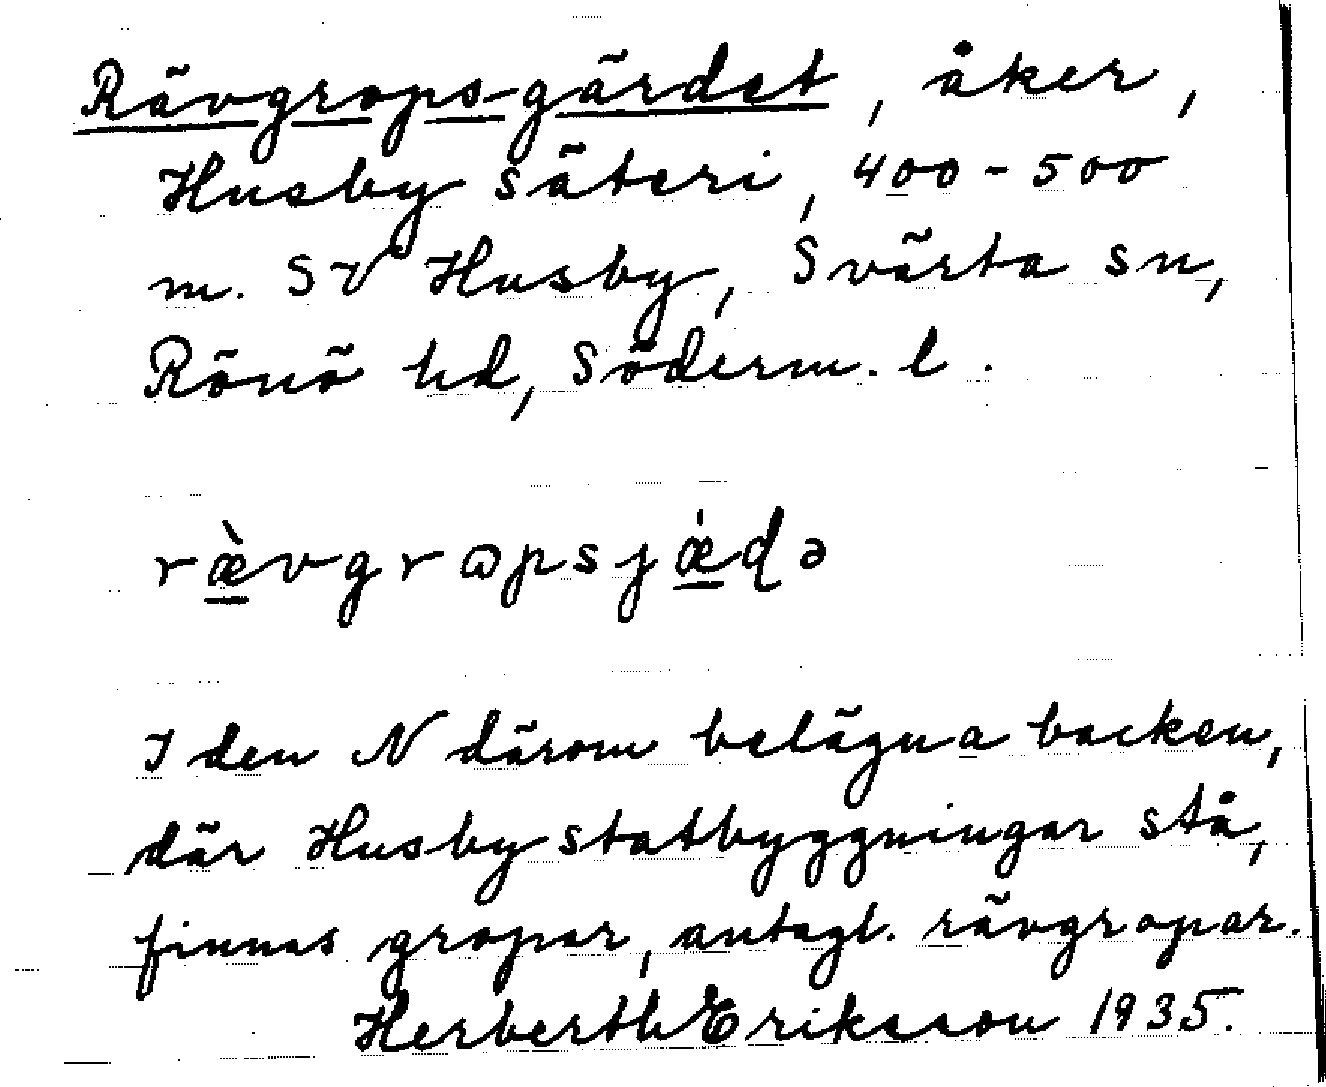 Rävgrops-gärdet, åker,
Husby säteri, 400-500
m. SV Husby, Svärta sn,
Rönö hd, Söderm. l.
ræ̀vgrɷpsjǽɖə
I den N därom belägna backen,
där Husby statbyggningar stå,
finnas gropar, antagl. rävgropar.
Herberth Eriksson 1935.